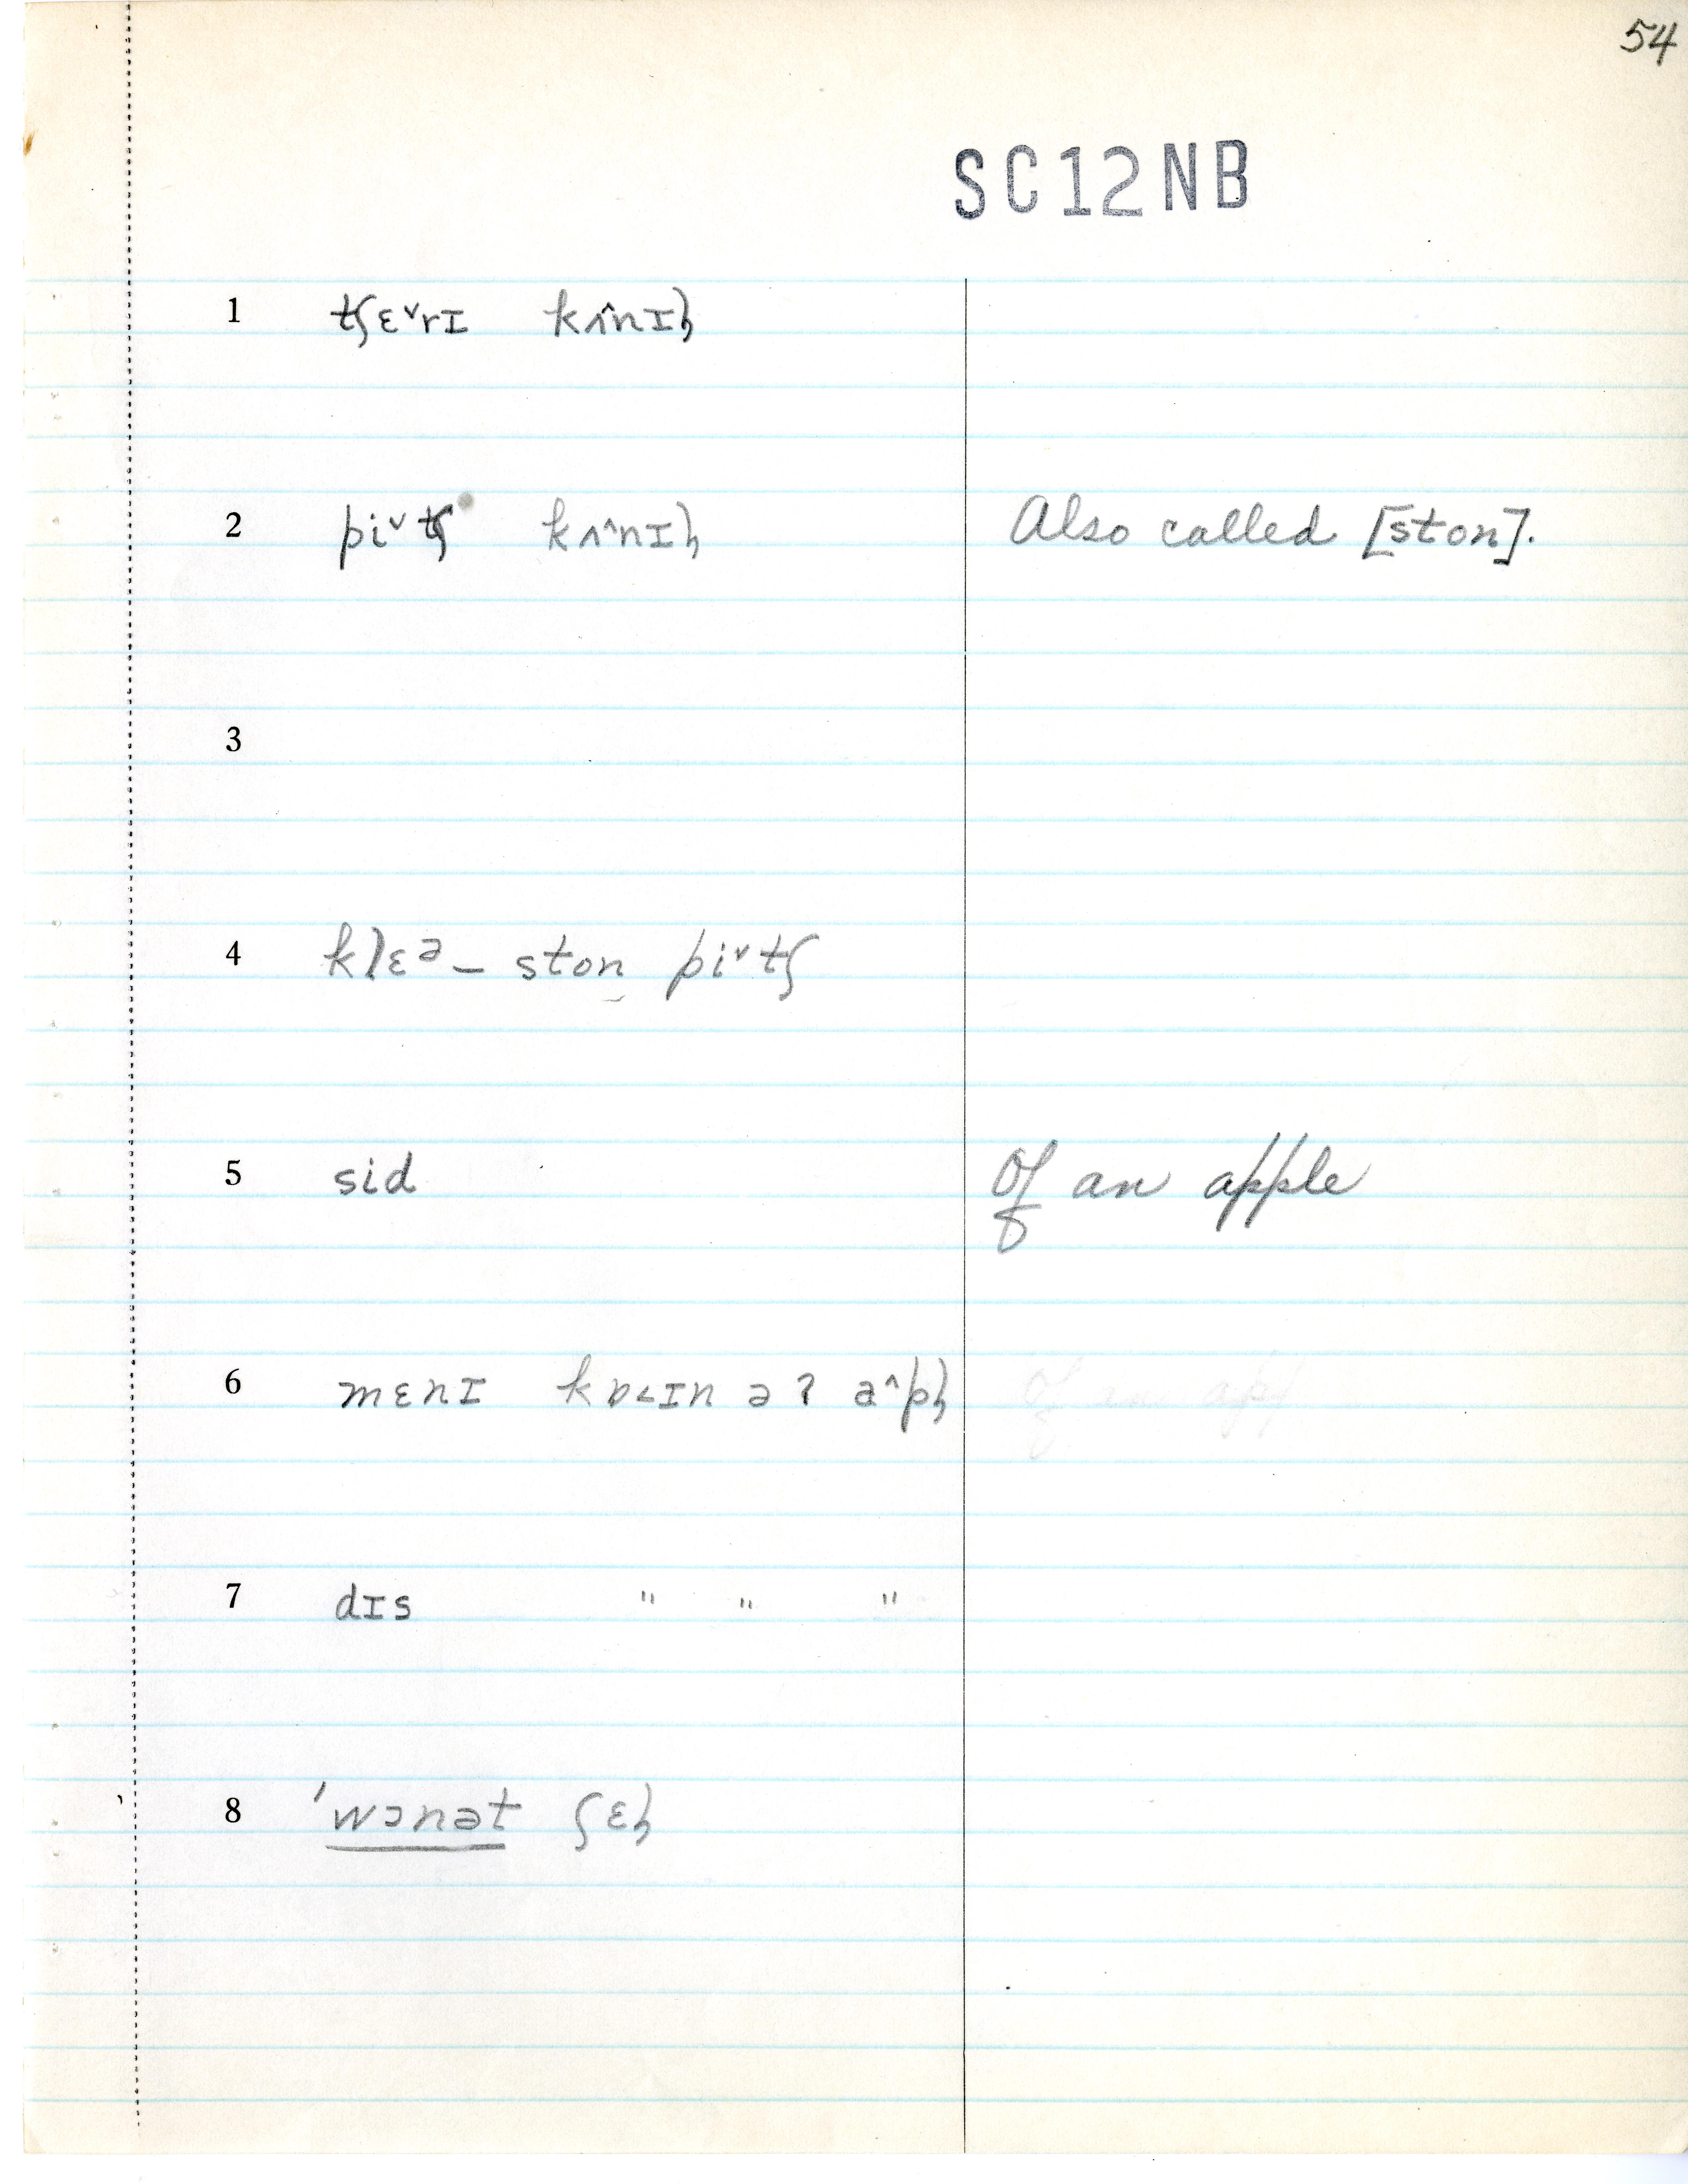 54
SC12NB
1 tʃɛ˅rɪ kʌ^nɪɫ
2 pi˅tʃ kʌ^nɪɫ Also called [ston].
3
4 klɛə – ston pi˅tʃ
5 sid Of an apple
6 mɛnɪ kɒ˂ɪn ə ʔ a^pɫ
7 dɪs " " "
8 ˈwɔnət ʃɛɫ